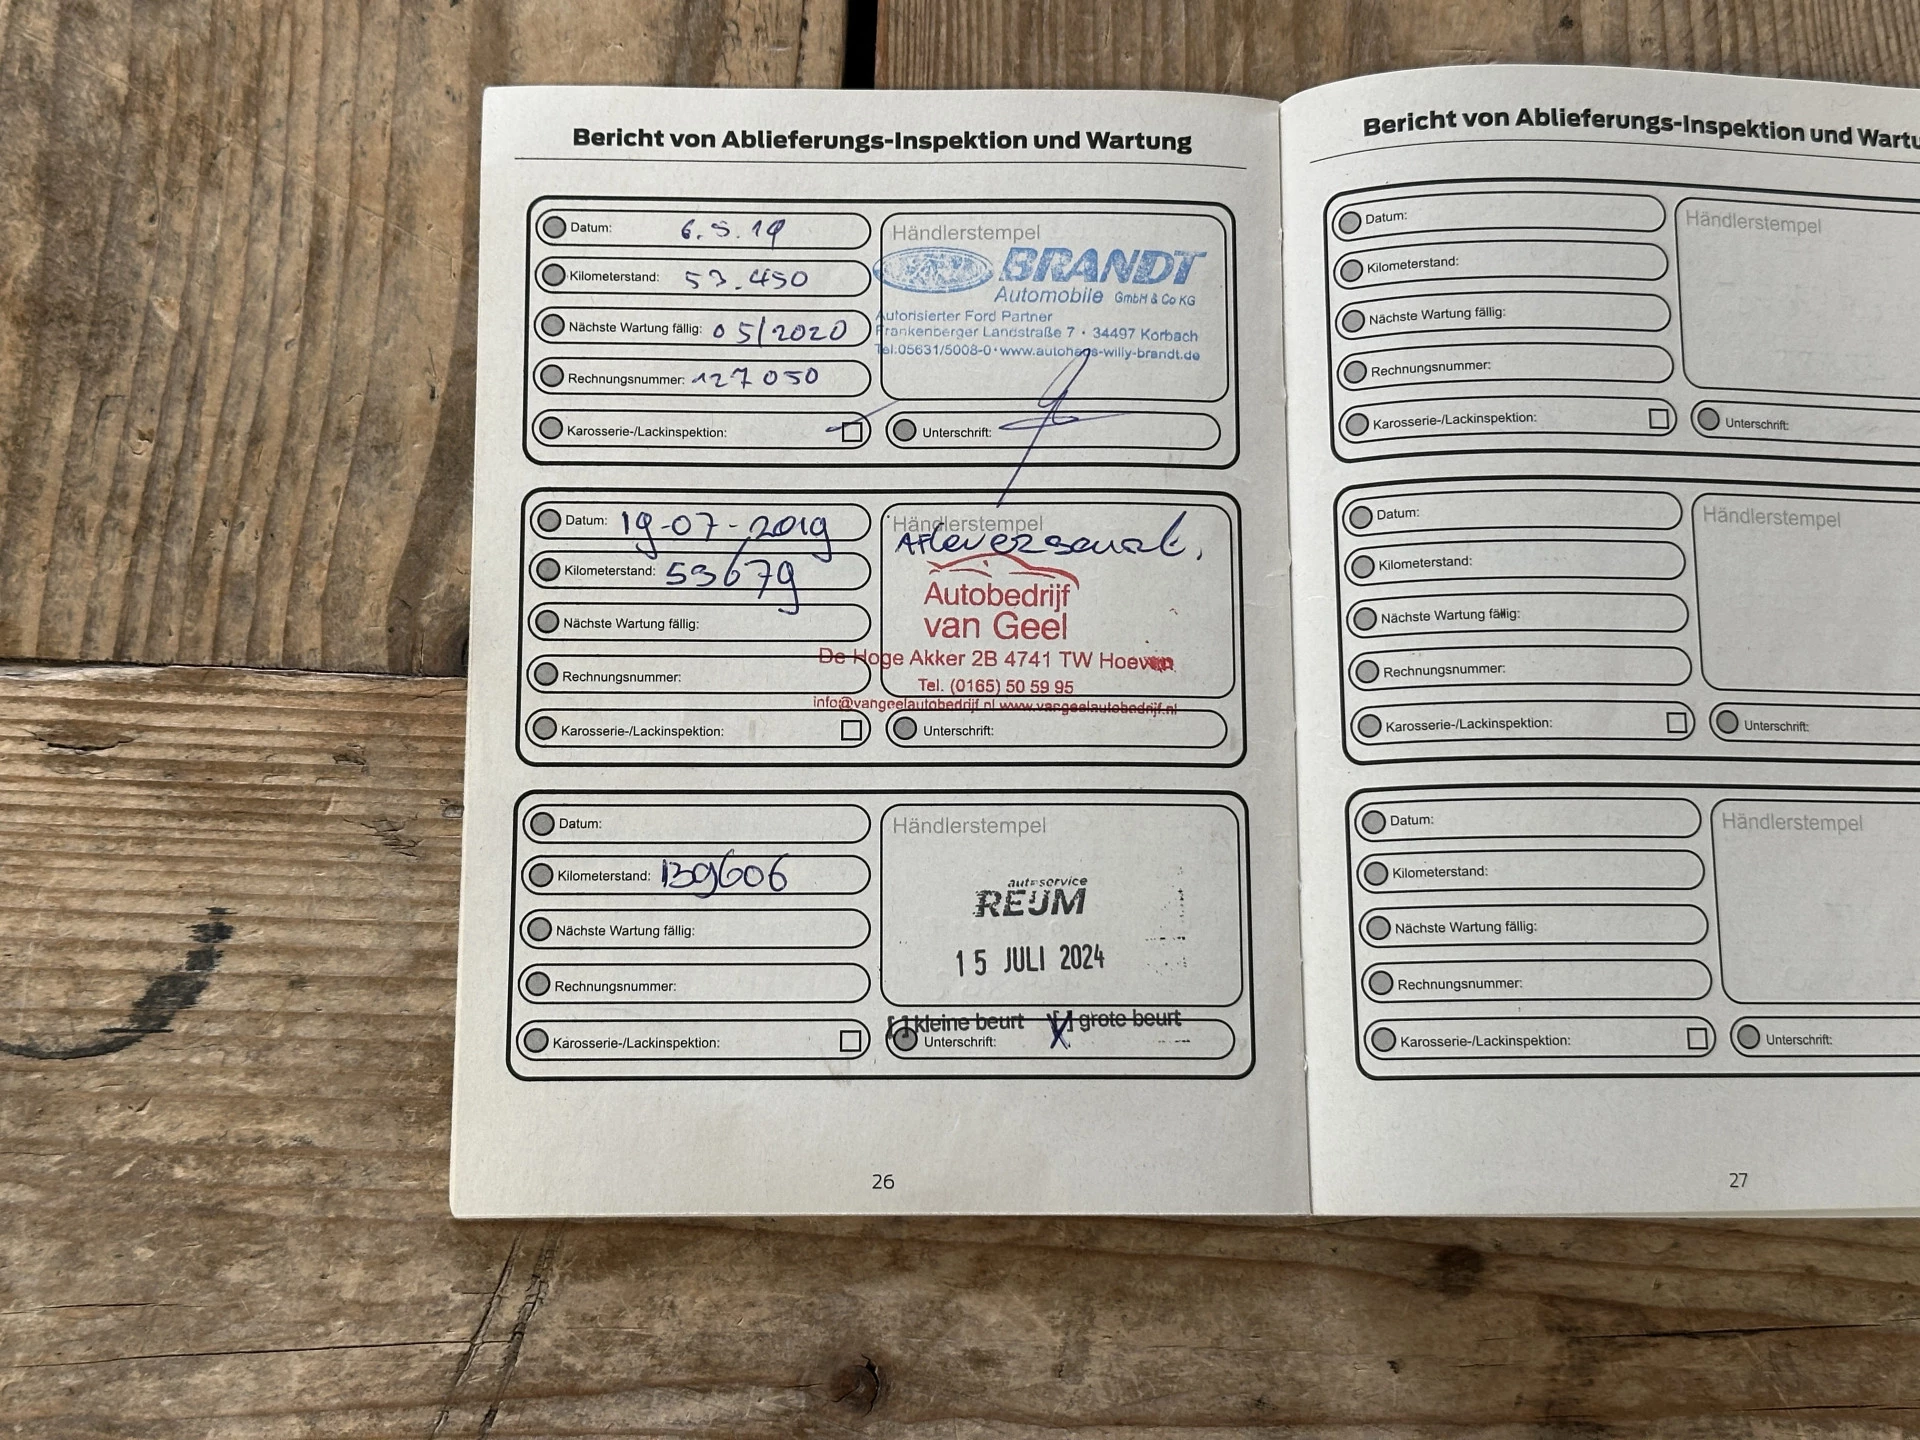 Bericht von Ablieferungs-Inspektion und Wartung
Datum: 6.5.19
Kilometerstand: 53.450
Nächste Wartung fällig: 05/2020
Rechnungsnummer: 127050
Karosserie-/Lackinspektion:
Händlerstempel
BRANDT
Automobile GmbH & Co KG
Autorisierter Ford Partner
Frankenberger Landstraße 7 · 34497 Korbach
Tel.05631/5008-0 · www.autohaus-willy-brandt.de
Unterschrift:
Datum: 19-07-2019
Kilometerstand: 53679
Nächste Wartung fällig:
Rechnungsnummer:
Karosserie-/Lackinspektion:
Händlerstempel
Afleverbeurt.
Autobedrijf
van Geel
De Hoge Akker 2B 4741 TW Hoeven
Tel. (0165) 50 59 95
info@vangeelautobedrijf.nl www.vangeelautobedrijf.nl
Unterschrift:
Datum:
Kilometerstand: 139606
Nächste Wartung fällig:
Rechnungsnummer:
Karosserie-/Lackinspektion:
Händlerstempel
autoservice
REIJM
15 JULI 2024
[ ] kleine beurt [ ] grote beurt
Unterschrift:
26
Bericht von Ablieferungs-Inspektion und Wartu
Datum:
Kilometerstand:
Nächste Wartung fällig:
Rechnungsnummer:
Karosserie-/Lackinspektion:
Händlerstempel
Unterschrift:
Datum:
Kilometerstand:
Nächste Wartung fällig:
Rechnungsnummer:
Karosserie-/Lackinspektion:
Händlerstempel
Unterschrift:
Datum:
Kilometerstand:
Nächste Wartung fällig:
Rechnungsnummer:
Karosserie-/Lackinspektion:
Händlerstempel
Unterschrift:
27